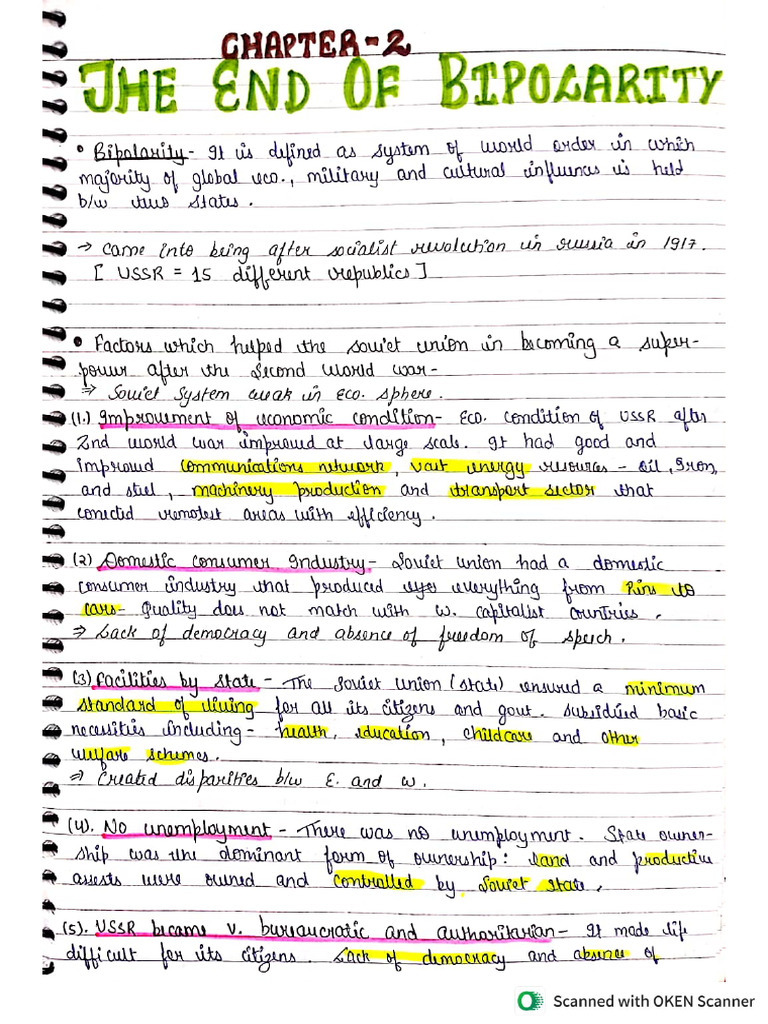 CHAPTER-2
THE END OF BIPOLARITY
• Bipolarity- It is defined as system of world order in which
majority of global eco., military and cultural influences is held
b/w two States.
→ Came into being after socialist revolution in russia in 1917.
[ USSR = 15 different republics ]
• Factors which helped the soviet union in becoming a super-
power after the Second World war-
⇒ Soviet System weak in Eco. sphere.
(1.) Improvement of economic condition- Eco. condition of USSR after
2nd world war improved at large scale. It had good and
improved communications network, vast energy resources - Oil, Iron,
and steel, machinery production and transport sector that
conected remotest areas with efficiency.
(2) Domestic consumer Industry- Soviet union had a domestic
consumer industry that produced everything from Pins to
cars- Quality does not match with w. capitalist countries.
⇒ Lack of democracy and absence of freedom of speech.
(3) Facilities by State - The Soviet Union (state) ensured a minimum
standard of living for all its citizens and govt. subsidised basic
necessities including- health, education, childcare and other
welfare schemes.
⇒ Created disparities b/w E. and w.
(4). No unemployment - There was no unemployment. State owner-
ship was the dominant form of ownership: land and productive
assests were owned and controlled by Soviet State.
(5). USSR became v. bureaucratic and authoritarian- It made life
difficult for its citizens. Lack of democracy and absence of
Scanned with OKEN Scanner